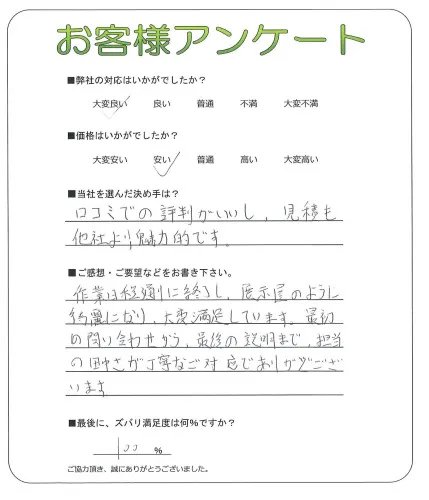 お客様アンケート
■弊社の対応はいかがでしたか？
大変良い 良い 普通 不満 大変不満
■価格はいかがでしたか？
大変安い 安い 普通 高い 大変高い
■当社を選んだ決め手は？
口コミでの評判がいいし、見積も
他社より魅力的です。
■ご感想・ご要望などをお書き下さい。
作業は順調に終了し、展示屋のように
綺麗になり、大変満足しています。最初
の問い合わせから、最後の説明まで、担当
の田中さんが丁寧なご対応でありがとうござ
います
■最後に、ズバリ満足度は何%ですか？
100 %
ご協力頂き、誠にありがとうございました。